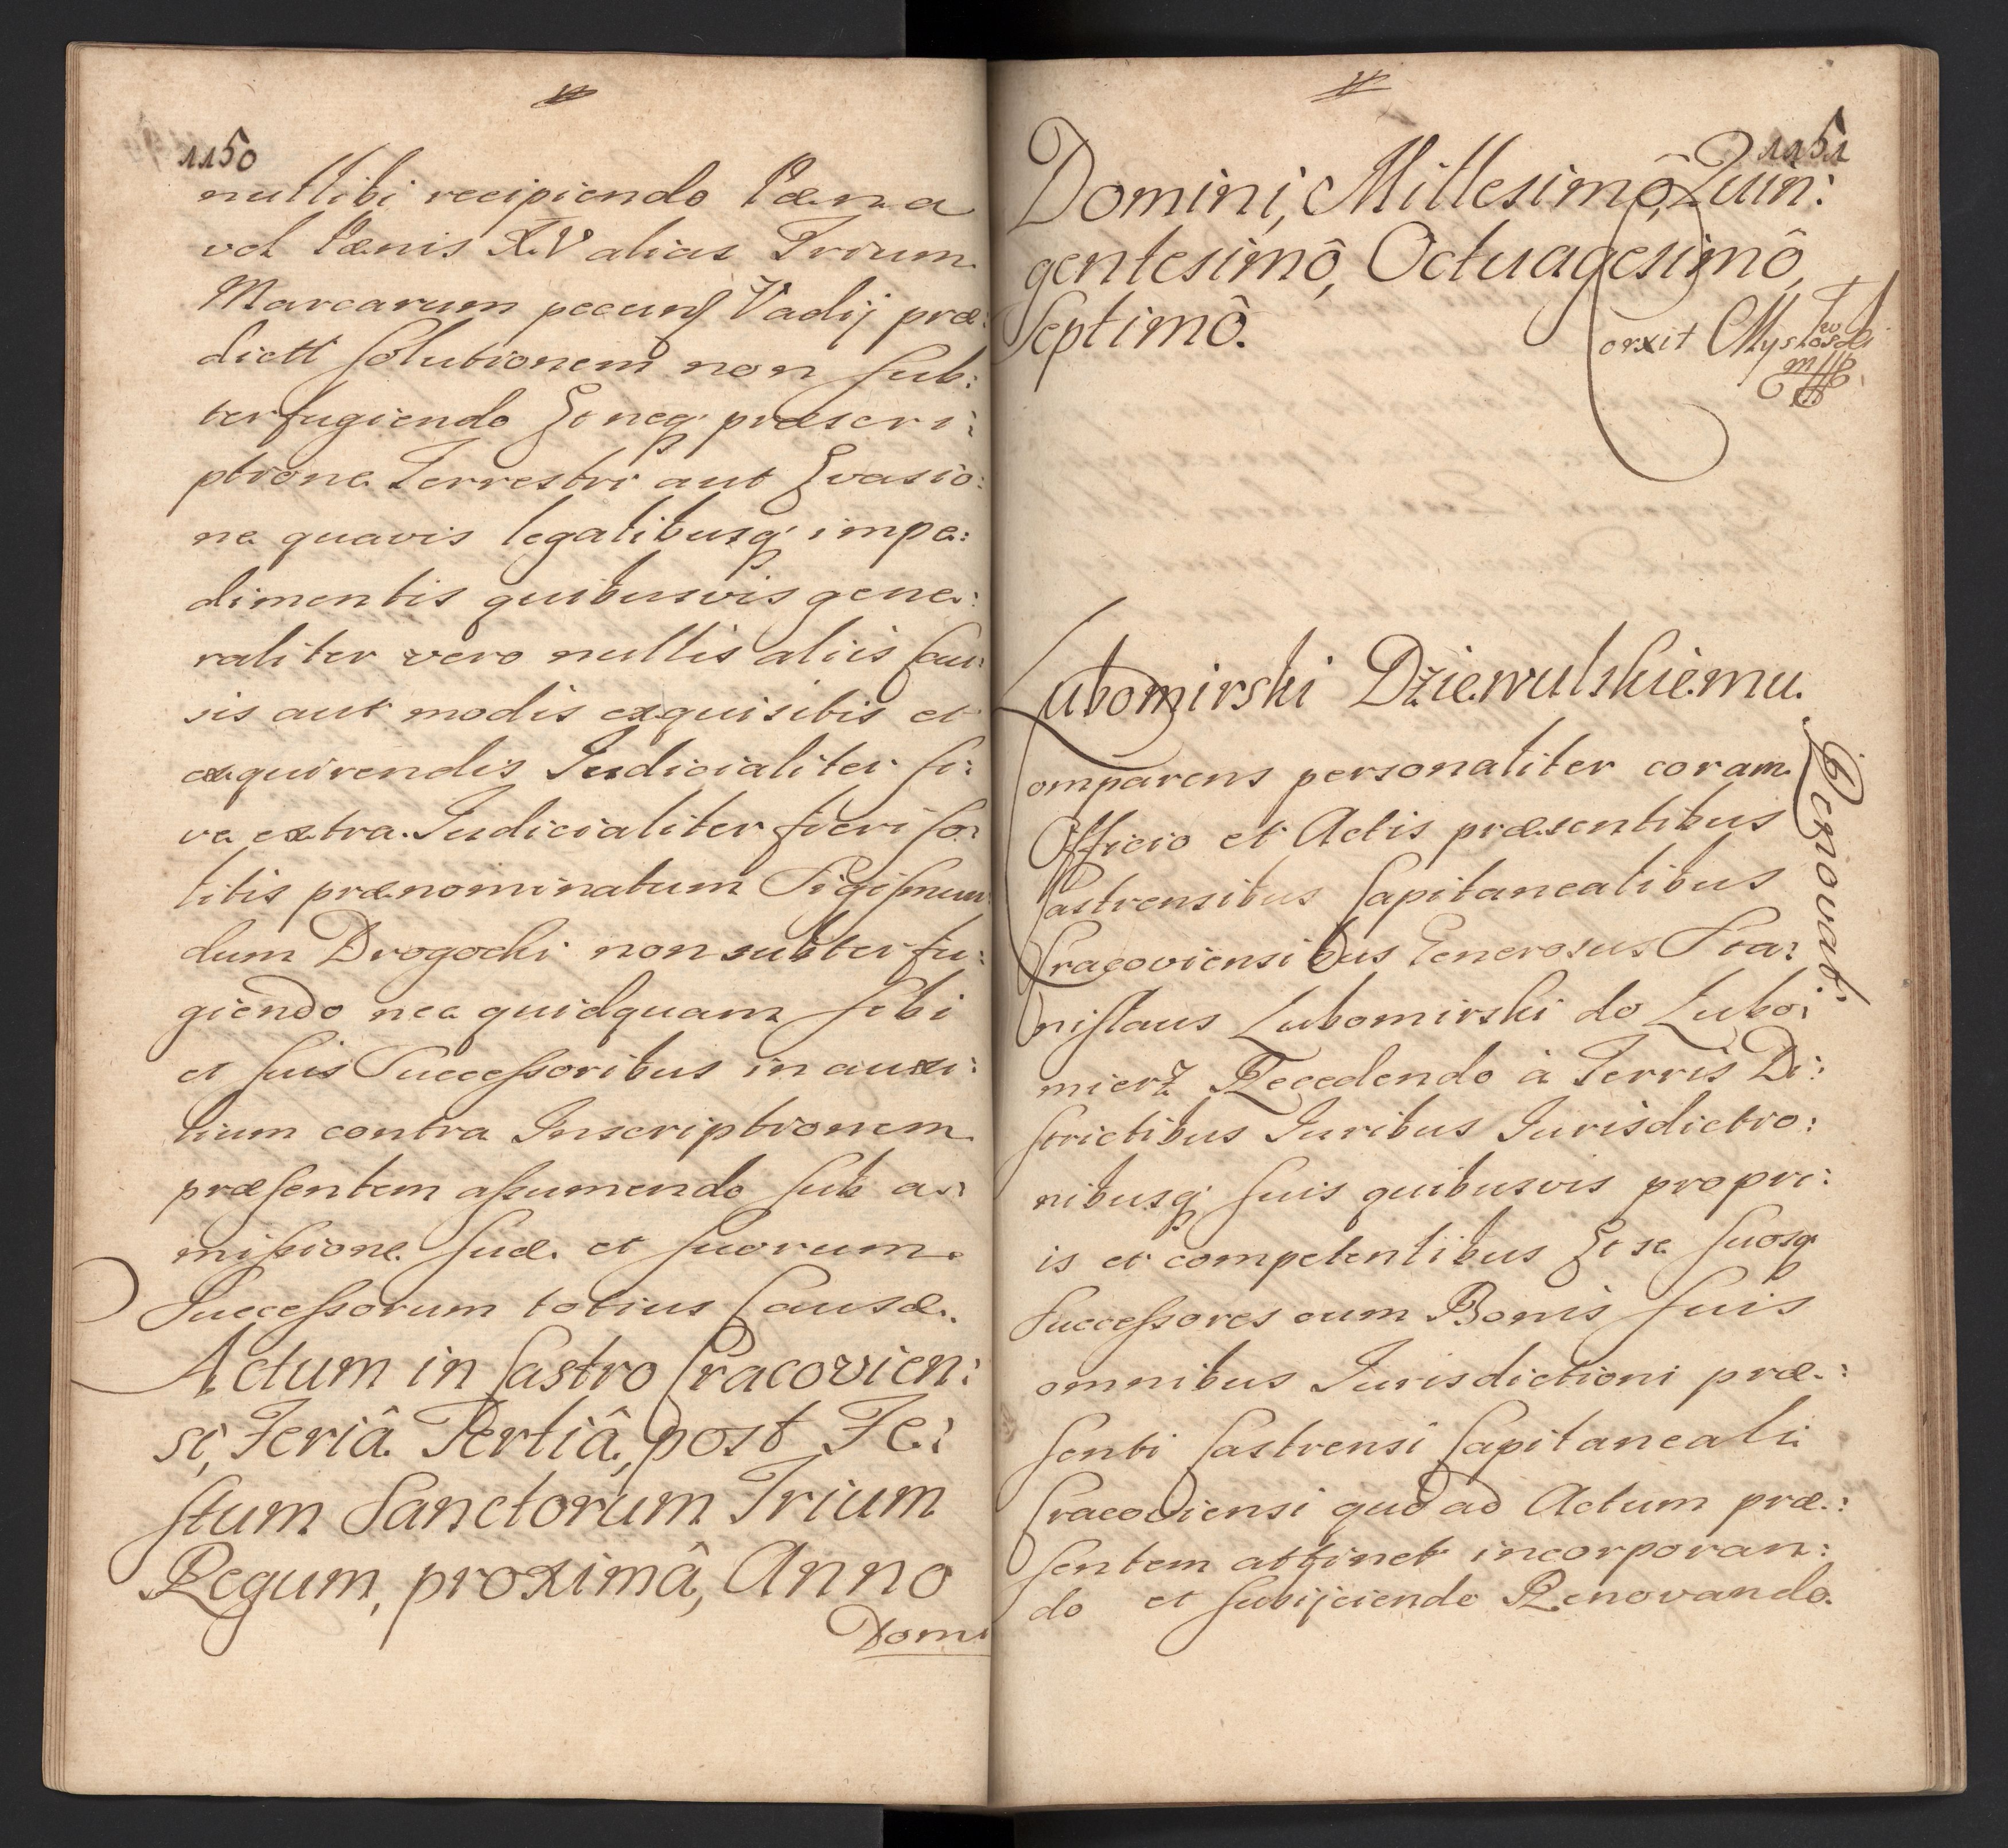 1150
nullibi recipiendo Pæna
vel Pænis XV alias Trium
Marcarum pecun Vadij præ:
dictt Solutionem non Sub:
terfugiendo Et neq præscri:
ptione Terrestri aut Evasio:
ne quavis legalibusq impe:
dimentis quibusvis gene:
raliter vero nullis aliis Cau:
sis aut modis exquisitis et
exquirendis Judicialiter si:
ve extra Judicialiter fieri so:
litis prænominatum Sigismun
dum Drogocki non subterfu:
giendo nec quidquam sibi
et suis Successoribus in auxi:
lium contra Inscriptionem
præsentem assumendo sub a:
missione suæ et suorum
Successorum totius Causæ.
Actum in Castro Cracovien:
si, Feriâ Tertiâ, post Fe:
stum Sanctorum Trium
Regum, proximâ, Anno
Domi
1151
Domini, Millesimô, Quin:
gentesimô, Octuagesimô,
Septimô.
Lubomirski Dżiewulskiemu.
Renovat
Comparens personaliter coram
Officio et Actis præsentibus
Castrensibus Capitanealibus
Cracoviensibus Generosus Sta:
nislaus Lubomirski de Lubo:
mierz Recedendo à Terris Di:
strictibus Iuribus Iurisdictio:
nibusq suis quibusvis propri:
is et competentibus Et se suosq
Successores cum Bonis suis
omnibus Iurisdictioni præ:
senti Castrensi Capitaneali
Cracoviensi quo ad Actum præ:
sentem attinet incorporan:
do et subijciendo Renovando